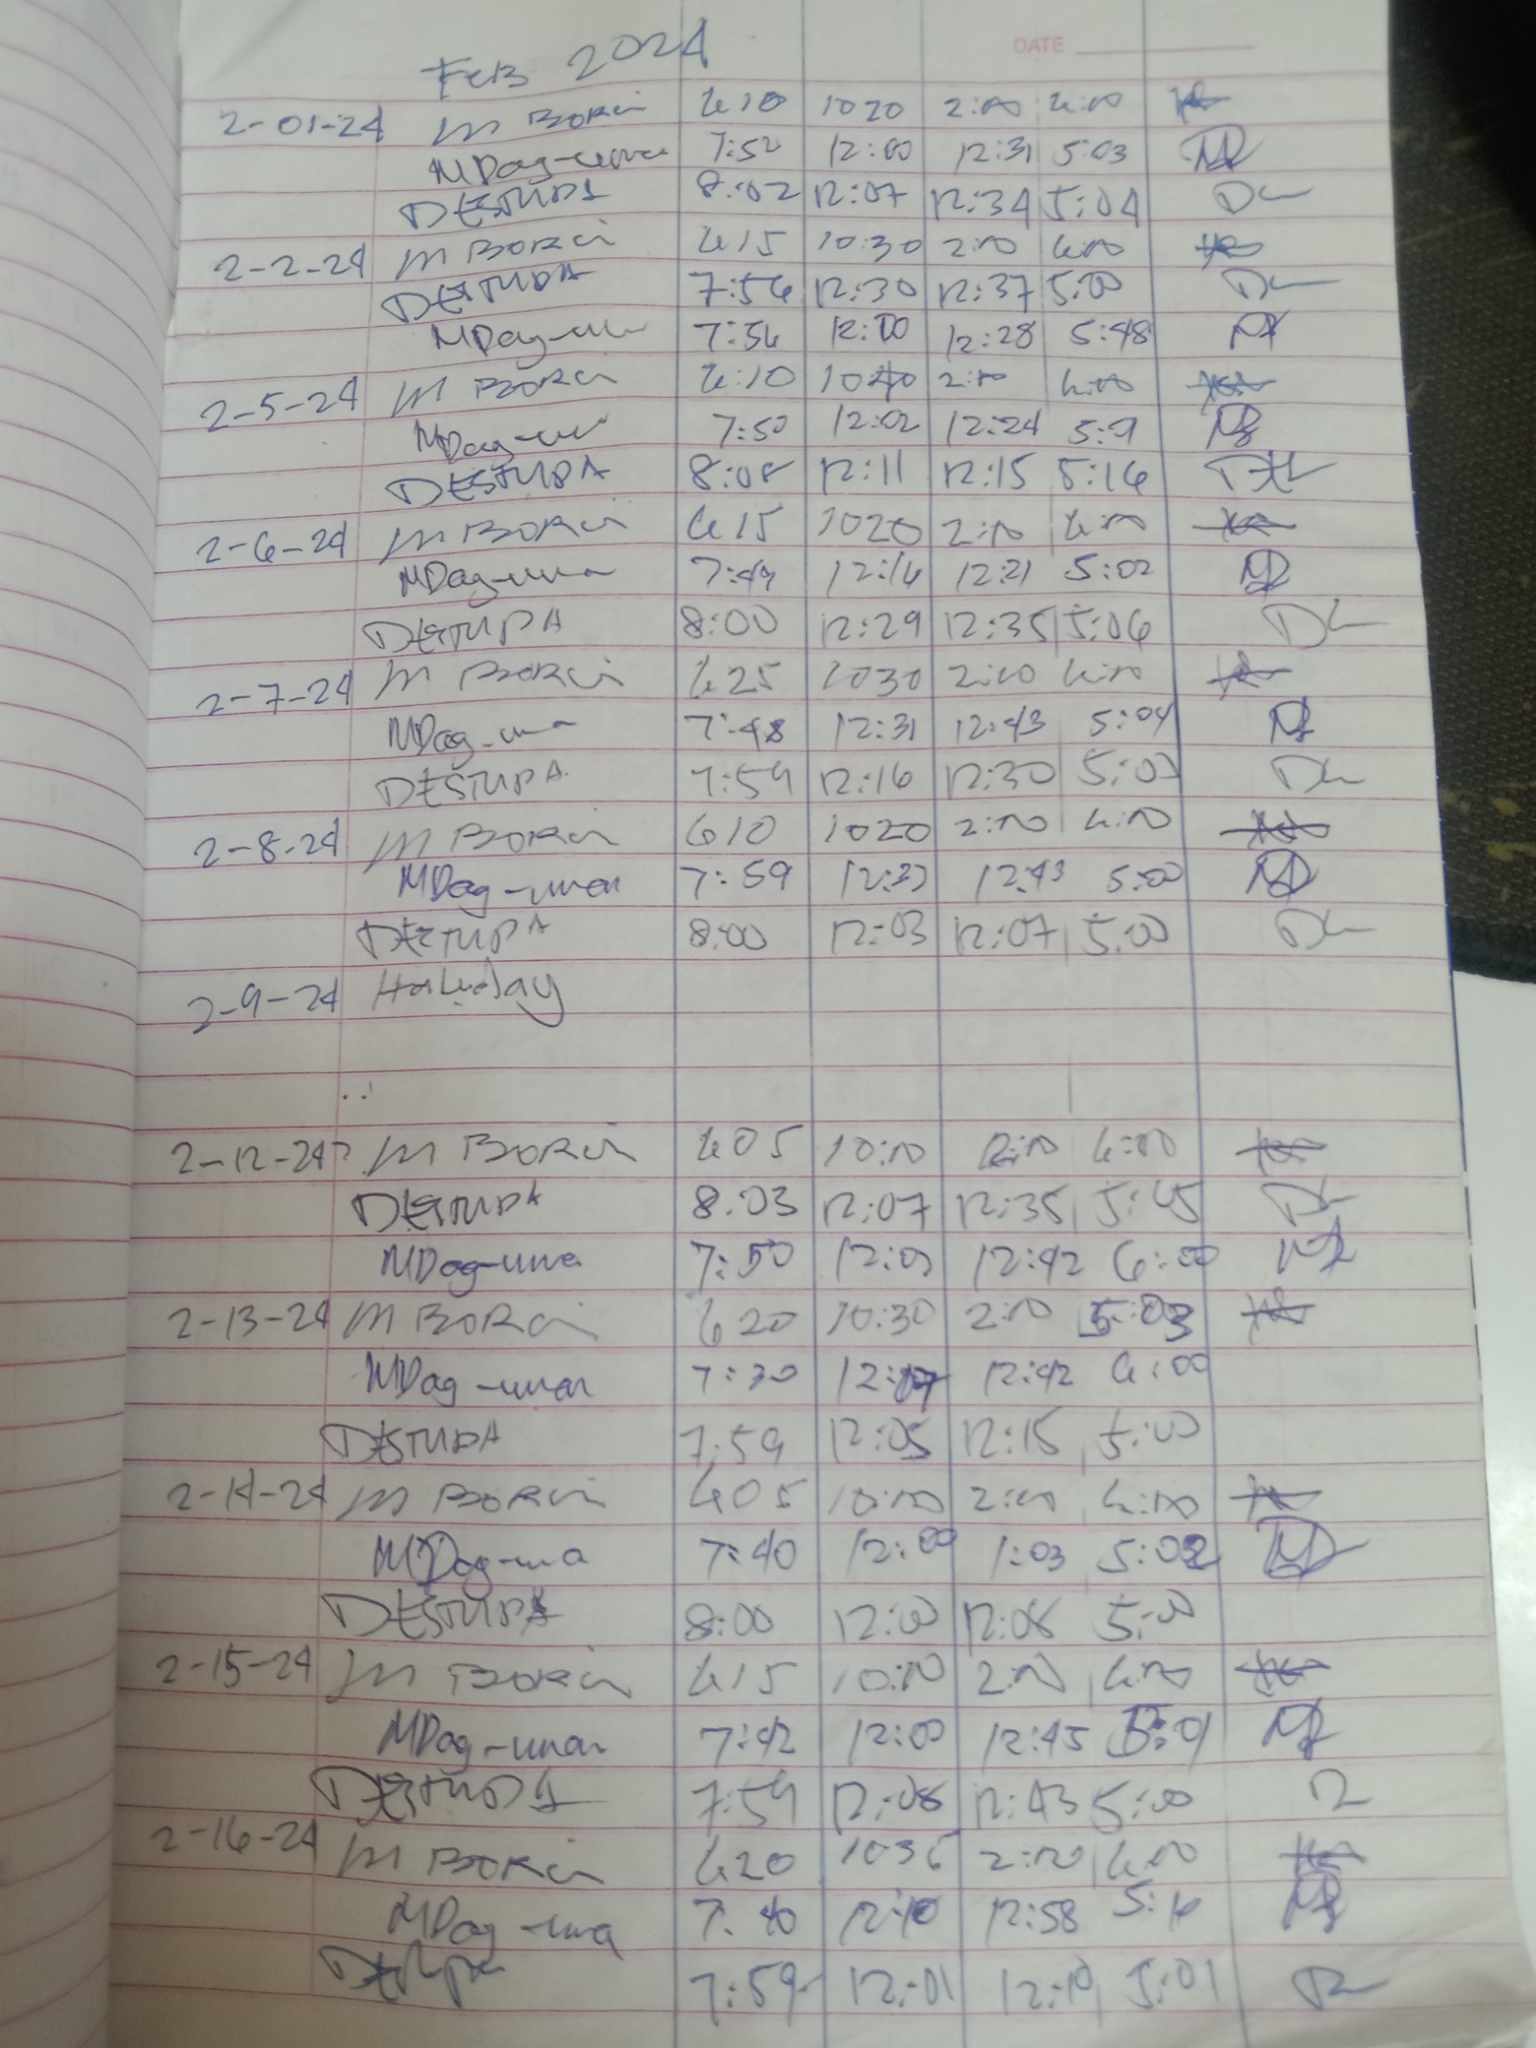 DATE
Feb 2024
2-01-24 M Borci 610 1020 2:00 6:00
MDag-uman 7:52 12:00 12:31 5:03
DESTUPA 8:02 12:07 12:34 5:04
2-2-24 M Borci 615 10:30 2:00 6:00
DESTUPA 7:56 12:30 12:37 5:00
MDag-uman 7:56 12:00 12:28 5:48
2-5-24 M Borci 6:10 1040 2:00 6:00
MDag-uman 7:50 12:02 12:24
DESTUPA 8:08 12:11 12:15 5:16
2-6-24 M Borci 615 1020 2:00 6:00
MDag-uma 7:49 12:16 12:21 5:02
DESTUPA 8:00 12:29 12:35 5:06
2-7-24 M Borci 625 1030 2:00 6:00
MDag-uma 7:48 12:31 12:43 5:04
DESTUPA 7:59 12:16 12:30 5:00
2-8-24 M Borci 610 1020 2:00 6:00
MDag-uman 7:59 12:43 5:00
DESTUPA 8:00 12:03 12:07 5:00
2-9-24 Holiday
2-12-24 M Borci 605 10:00 2:00 6:00
DESTUPA 8:03 12:07 12:35 5:45
MDag-uma 7:50 12:42 6:00
2-13-24 M Borci 620 10:30 2:00 5:03
MDag-uman 7:30 12:42 6:00
DESTUPA 7:59 12:05 12:15 5:00
2-14-24 M Borci 605 10:00 2:00 6:00
MDag-uma 7:40 12:00 1:03 5:02
DESTUPA 8:00 12:00 12:08 5:00
2-15-24 M Borci 615 10:00 2:00 6:00
MDag-uman 7:42 12:00 12:45 5:01
DESTUPA 7:59 12:08 12:43 5:00
2-16-24 M Borci 620 1036 2:00 6:00
MDag-uma 7:40 12:10 12:58 5:16
7:59 12:01 12:10 5:01